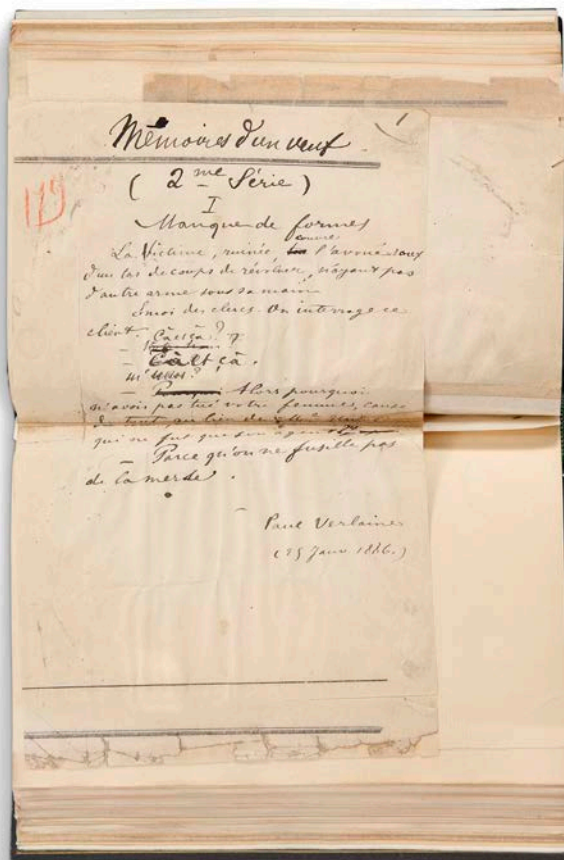 119
Mémoires d'un veuf.
( 2me Série )
I
Manque de formes
La Victime, ruinée, l'avoué
d'un tas de coups de révolver, n'ayant pas
d'autre arme sous sa main.
Émoi des clercs. On interroge ce
client.
— Çà et çà.
— Alors pourquoi
n'avoir pas tué votre femme, cause
de tout, au lieu de
qui ne fut que son agent
— Parce qu'on ne fusille pas
de la merde.
Paul Verlaine
(25 Janv. 1886.)